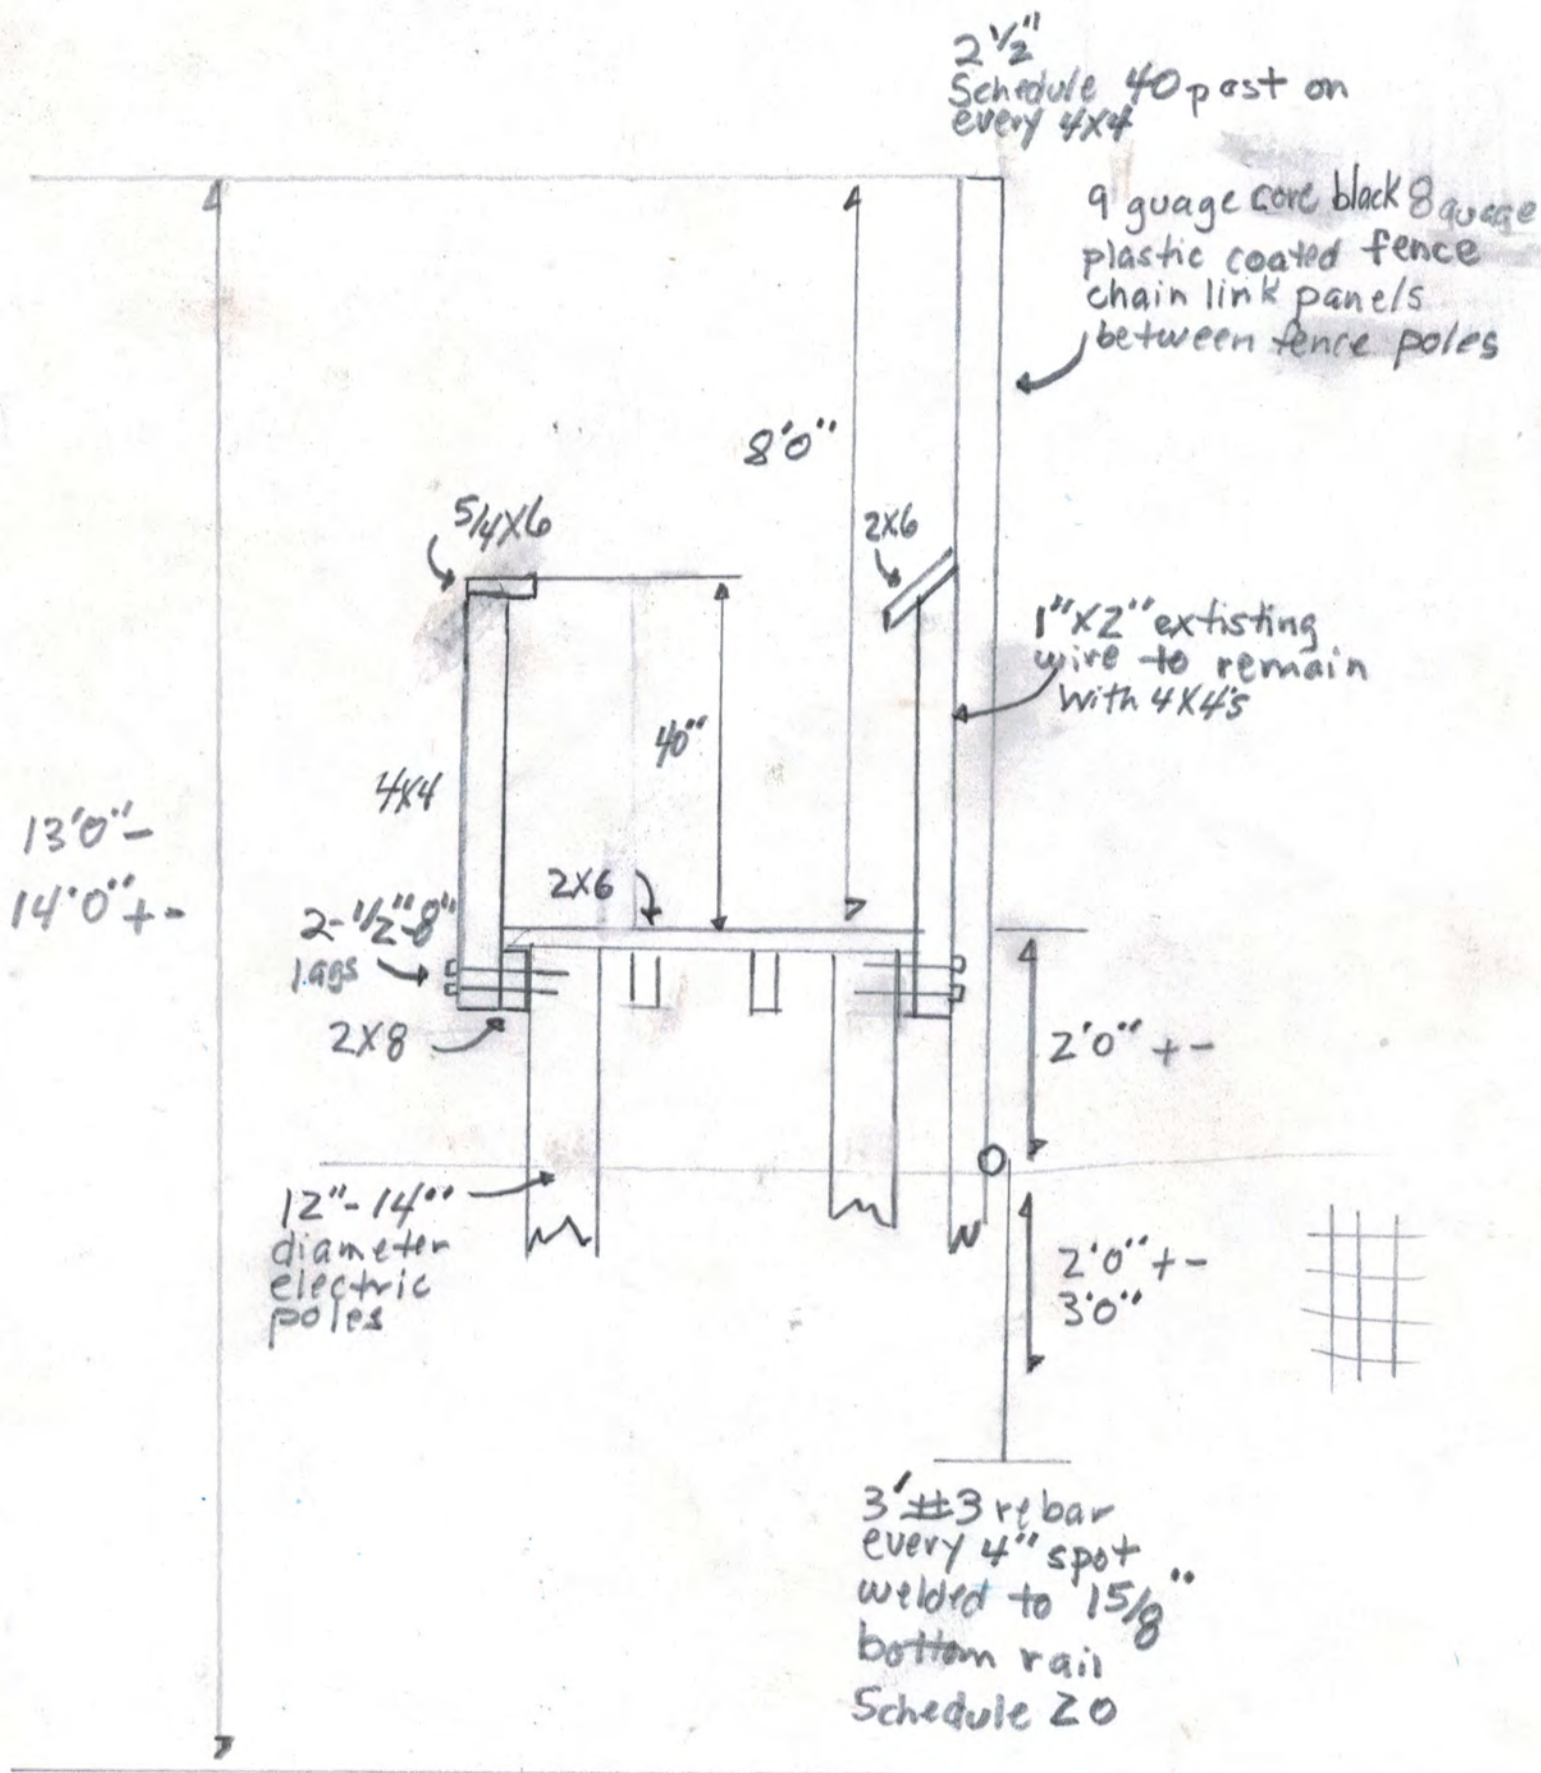 2 1/2"
Schedule 40 post on
every 4x4
9 guage core black 8 guage
plastic coated fence
chain link panels
between fence poles
8'0"
5/4X6
2X6
1"X2" extisting
wire to remain
with 4X4's
40"
4X4
13'0"-
14'0"+-
2X6
2-1/2"-8"
lags
2X8
2'0" +-
12"-14"
diameter
electric
poles
2'0"+-
3'0"
3' #3 rebar
every 4" spot
welded to 15/8"
bottom rail
Schedule 20